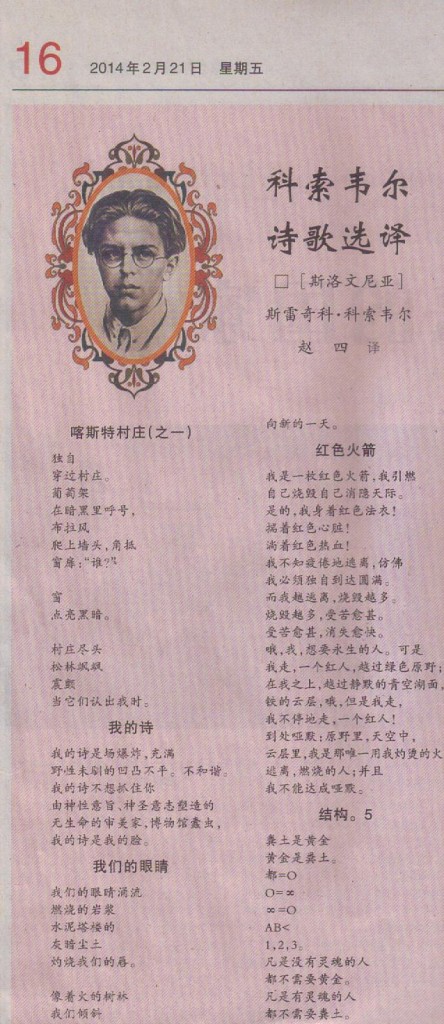 16
2014年2月21日 星期五
科索韦尔
诗歌选译
□ [斯洛文尼亚]
斯雷奇科·科索韦尔
赵 四 译
喀斯特村庄(之一)
独自
穿过村庄。
葡萄架
在暗黑里呼号,
布拉风
爬上墙头,角抵
窗扉:“谁?”
窗
点亮黑暗。
村庄尽头
松林飒飒
震颤
当它们认出我时。
我的诗
我的诗是场爆炸,充满
野性未驯的凹凸不平。不和谐。
我的诗不想抓住你
由神性意旨、神圣意志塑造的
无生命的审美家,博物馆蠹虫,
我的诗是我的脸。
我们的眼睛
我们的眼睛淌流
燃烧的岩浆
水泥塔楼的
灰暗尘土
灼烧我们的唇。
像着火的树林
我们倾斜
向新的一天。
红色火箭
我是一枚红色火箭,我引燃
自己烧毁自己消隐天际。
是的,我身着红色法衣!
揣着红色心脏!
淌着红色热血!
我不知疲倦地逃离,仿佛
我必须独自到达圆满。
而我越逃离,烧毁越多。
烧毁越多,受苦愈甚。
受苦愈甚,消失愈快。
哦,我,想要永生的人。可是
我走,一个红人,越过绿色原野;
在我之上,越过静默的青空湖面,
铁的云层,哦,但是我走,
我不停地走,一个红人!
到处哑默:原野里,天空中,
云层里,我是那唯一用我灼烫的火
逃离,燃烧的人;并且
我不能达成哑默。
结构。5
粪土是黄金
黄金是粪土。
都=O
O=∞
∞=O
AB<
1,2,3。
凡是没有灵魂的人
都不需要黄金。
凡是有灵魂的人
都不需要粪土。